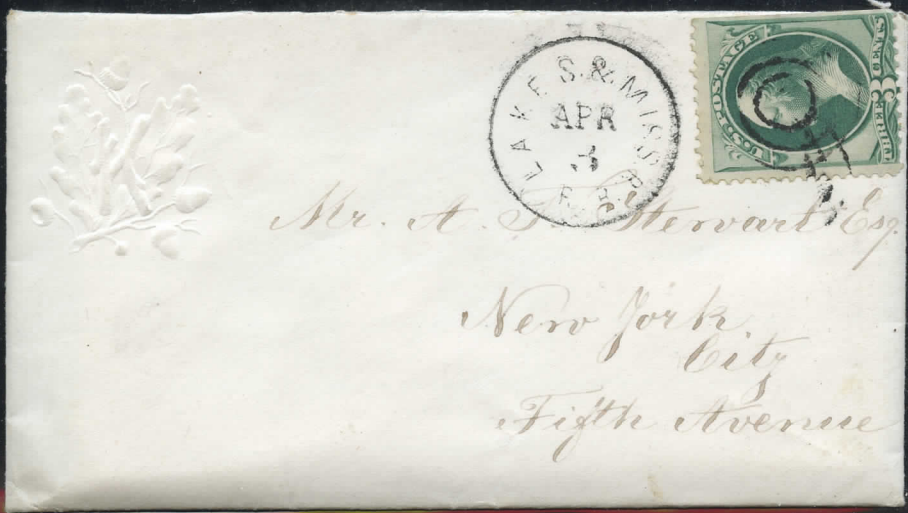 LAKE S. & MISS. R.
APR
3
R.P.O.
U.S. POSTAGE
3
Mr. A. T. Stewart Esq.
New York
City
Fifth Avenue